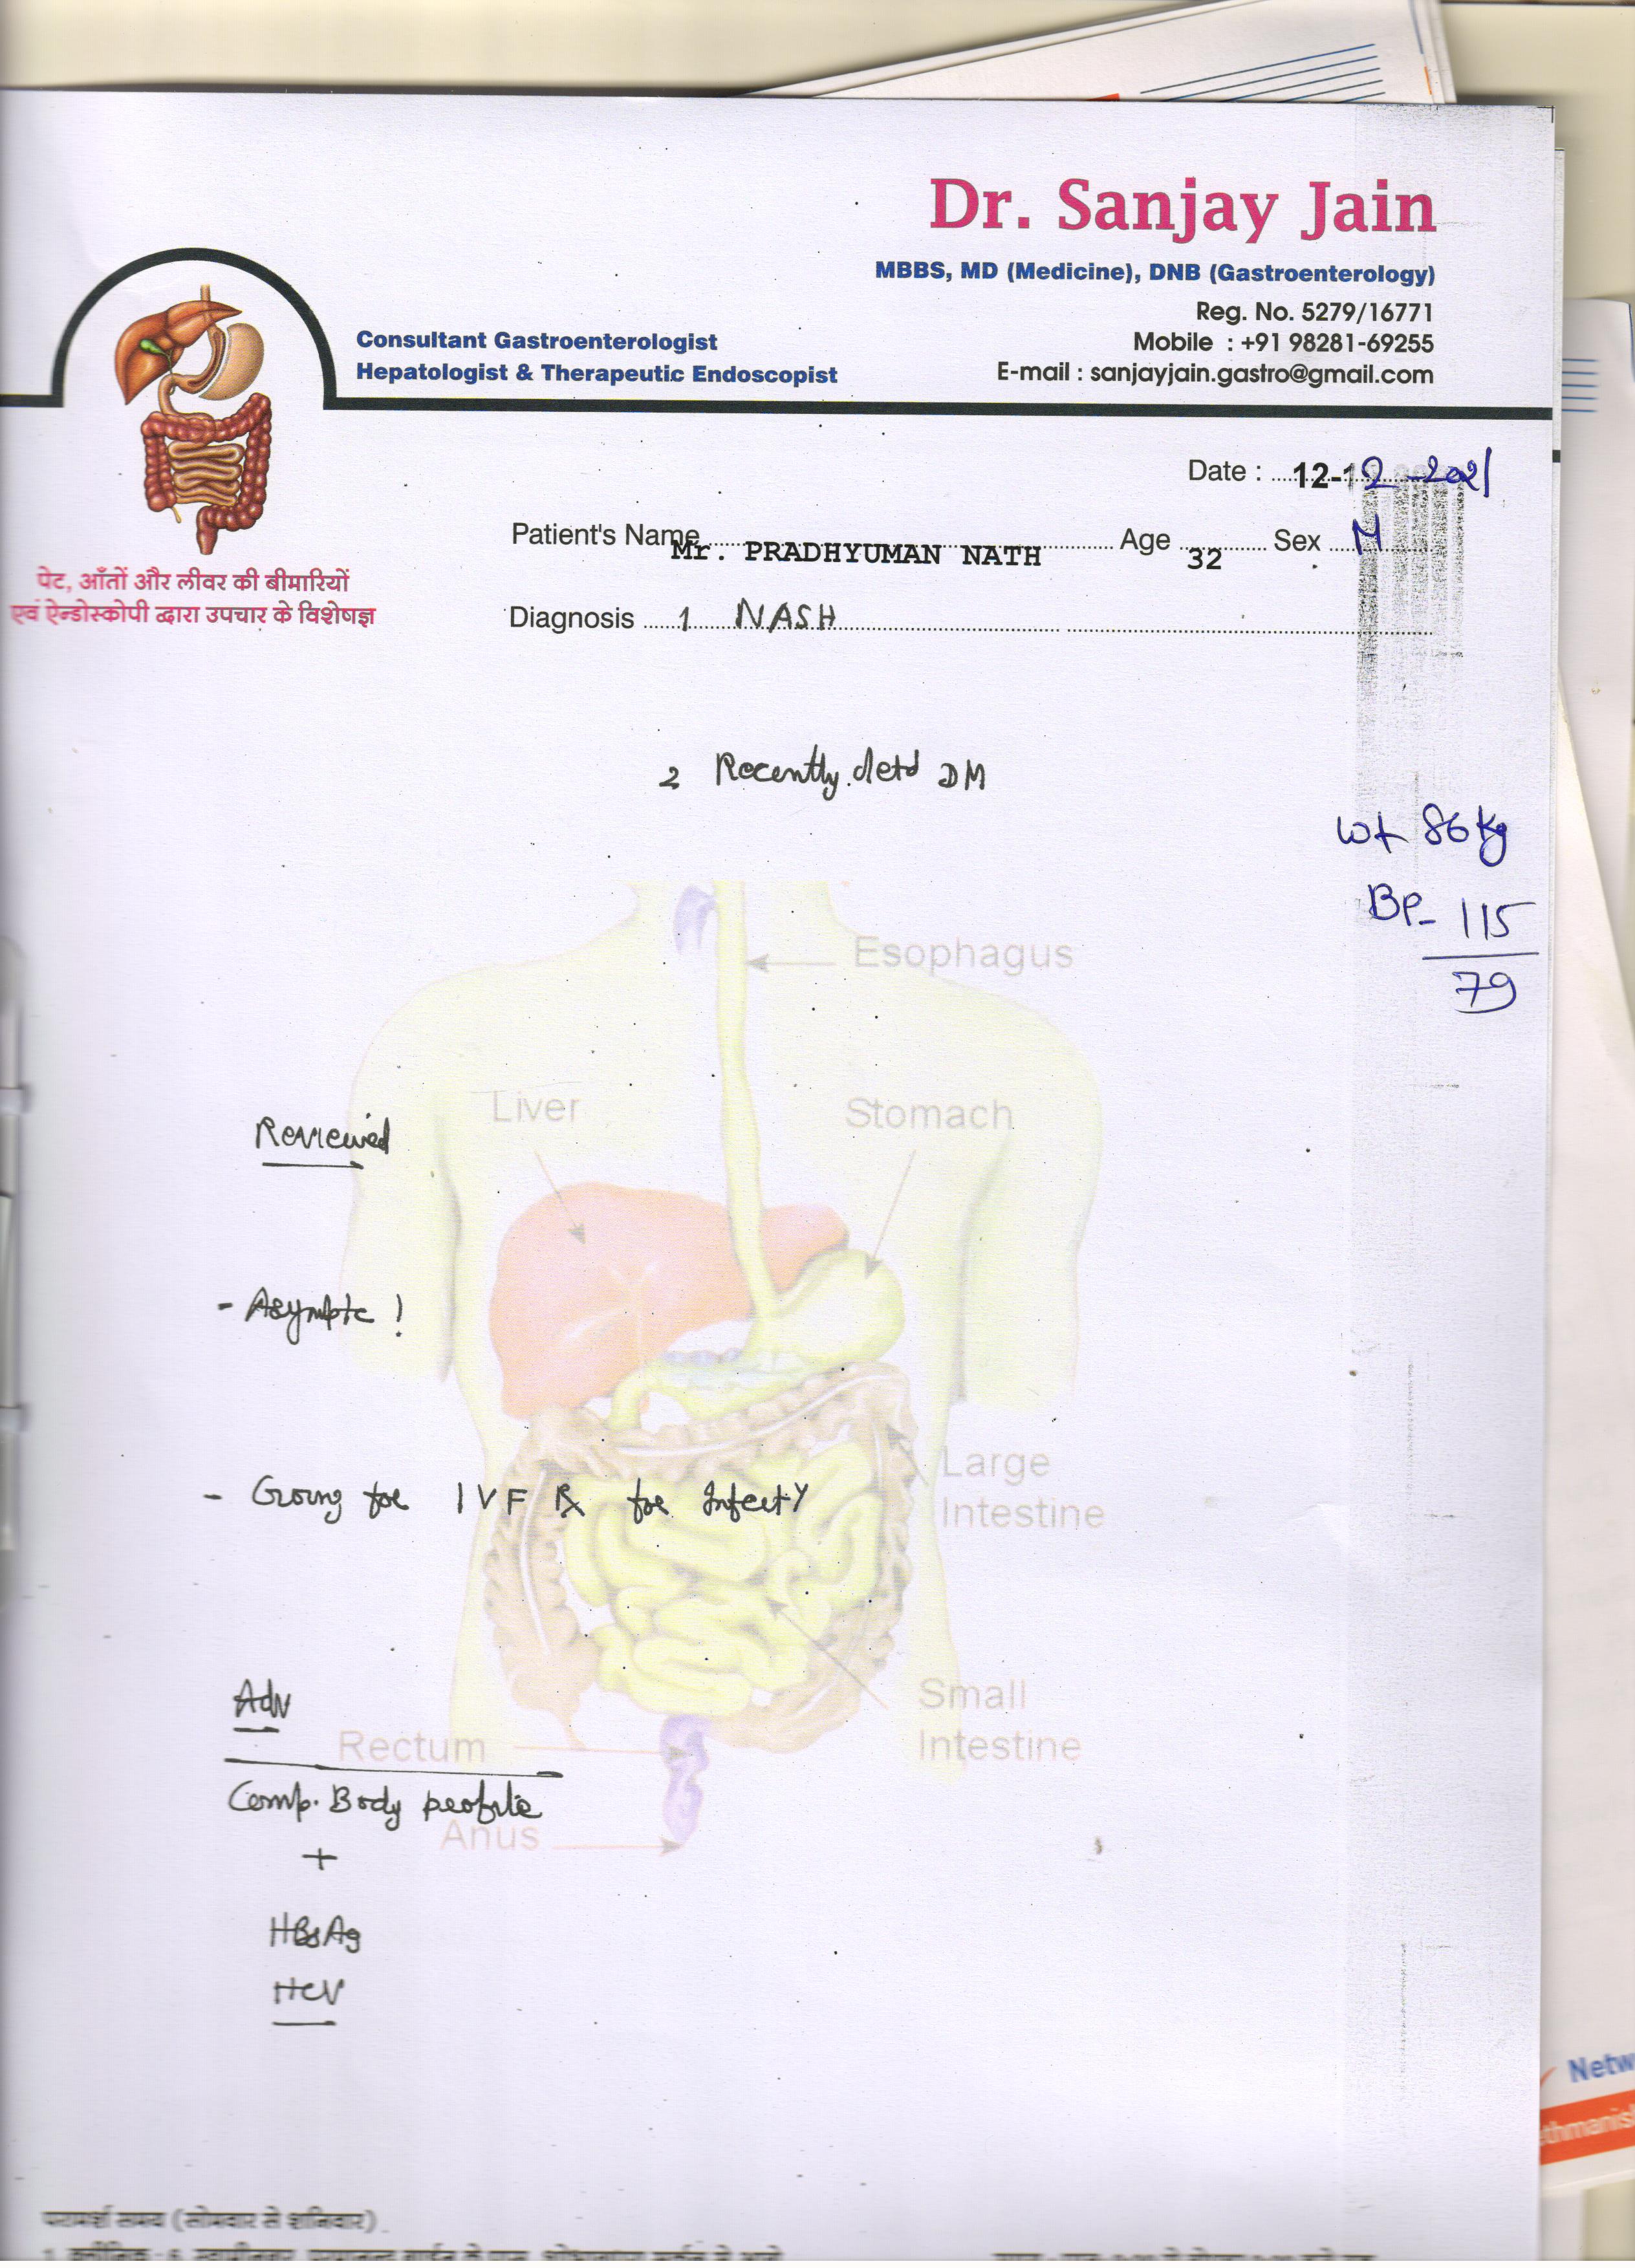 Dr. Sanjay Jain
MBBS, MD (Medicine), DNB (Gastroenterology)
Reg. No. 5279/16771
Mobile : +91 98281-69255
E-mail : sanjayjain.gastro@gmail.com
Consultant Gastroenterologist
Hepatologist & Therapeutic Endoscopist
पेट, आँतों और लीवर की बीमारियों
एवं ऐन्डोस्कोपी द्वारा उपचार के विशेषज्ञ
Date : 12-12-2021
Patient's Name Mr. PRADHYUMAN NATH Age 32 Sex M
Diagnosis 1 NASH
2 Recently detd DM
Wt 86 kg
BP- 115
79
Esophagus
Liver
Stomach
Reviewed
- Asympte !
Large
Intestine
- Going for IVF Rx for InfertY
Small
Intestine
Adv
Rectum
Comp. Body profile
Anus
+
HBsAg
HCV
परामर्श समय (सोमवार से शनिवार)
Netw
ethmanis